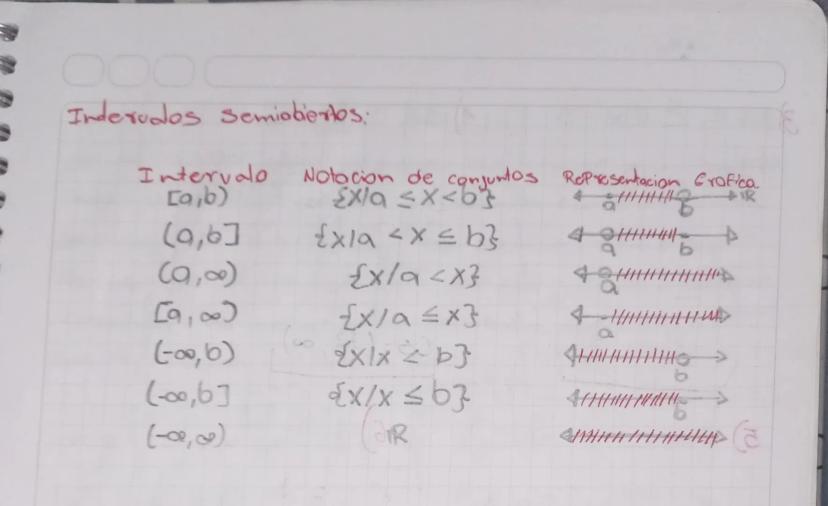 Intervalos semiabiertos:
Intervalo Notacion de conjuntos Representacion Grafica
[a,b) {x/a ≤ x < b} a b IR
(a,b] {x/a < x ≤ b} a b
(a,∞) {x/a < x} a
[a,∞) {x/a ≤ x} a
(-∞,b) {x/x < b} b
(-∞,b] {x/x ≤ b} b
(-∞,∞) IR